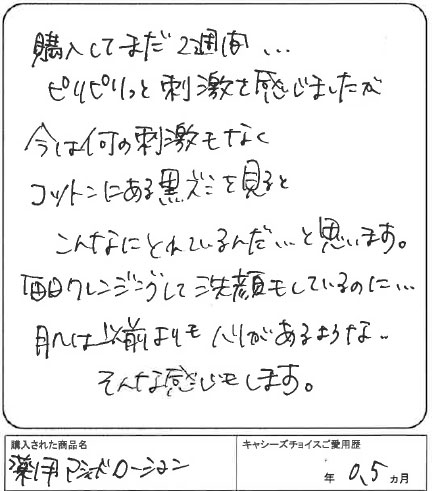 購入してまだ2週間...
ピリピリっと刺激を感じましたが
今は何の刺激もなく
コットンにある黒ズミを見ると
こんなにとれているんだ...と思います。
毎日クレンジングして洗顔もしているのに...
肌は以前よりもハリがあるような..
そんな感じもします。
購入された商品名
キャシーズチョイスご愛用歴
薬用アシッドローション
年 0.5 カ月